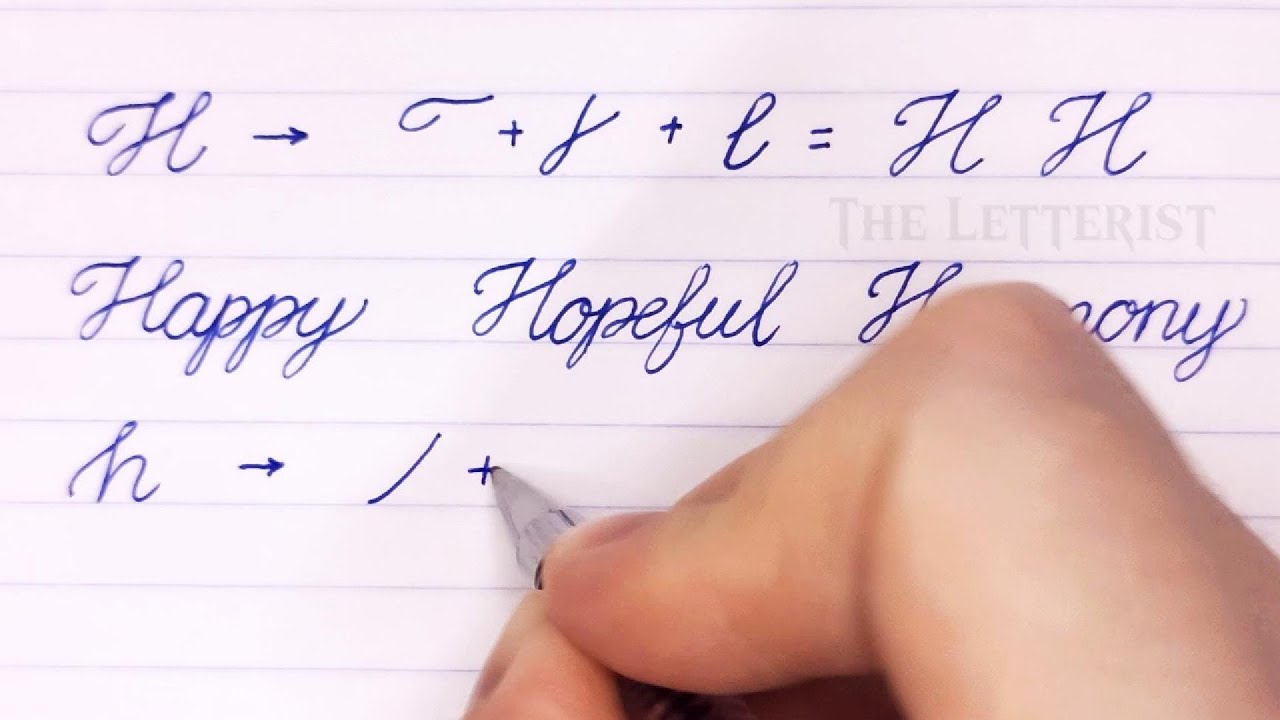 H → + + l = H H
THE LETTERIST
Happy Hopeful
h → / +